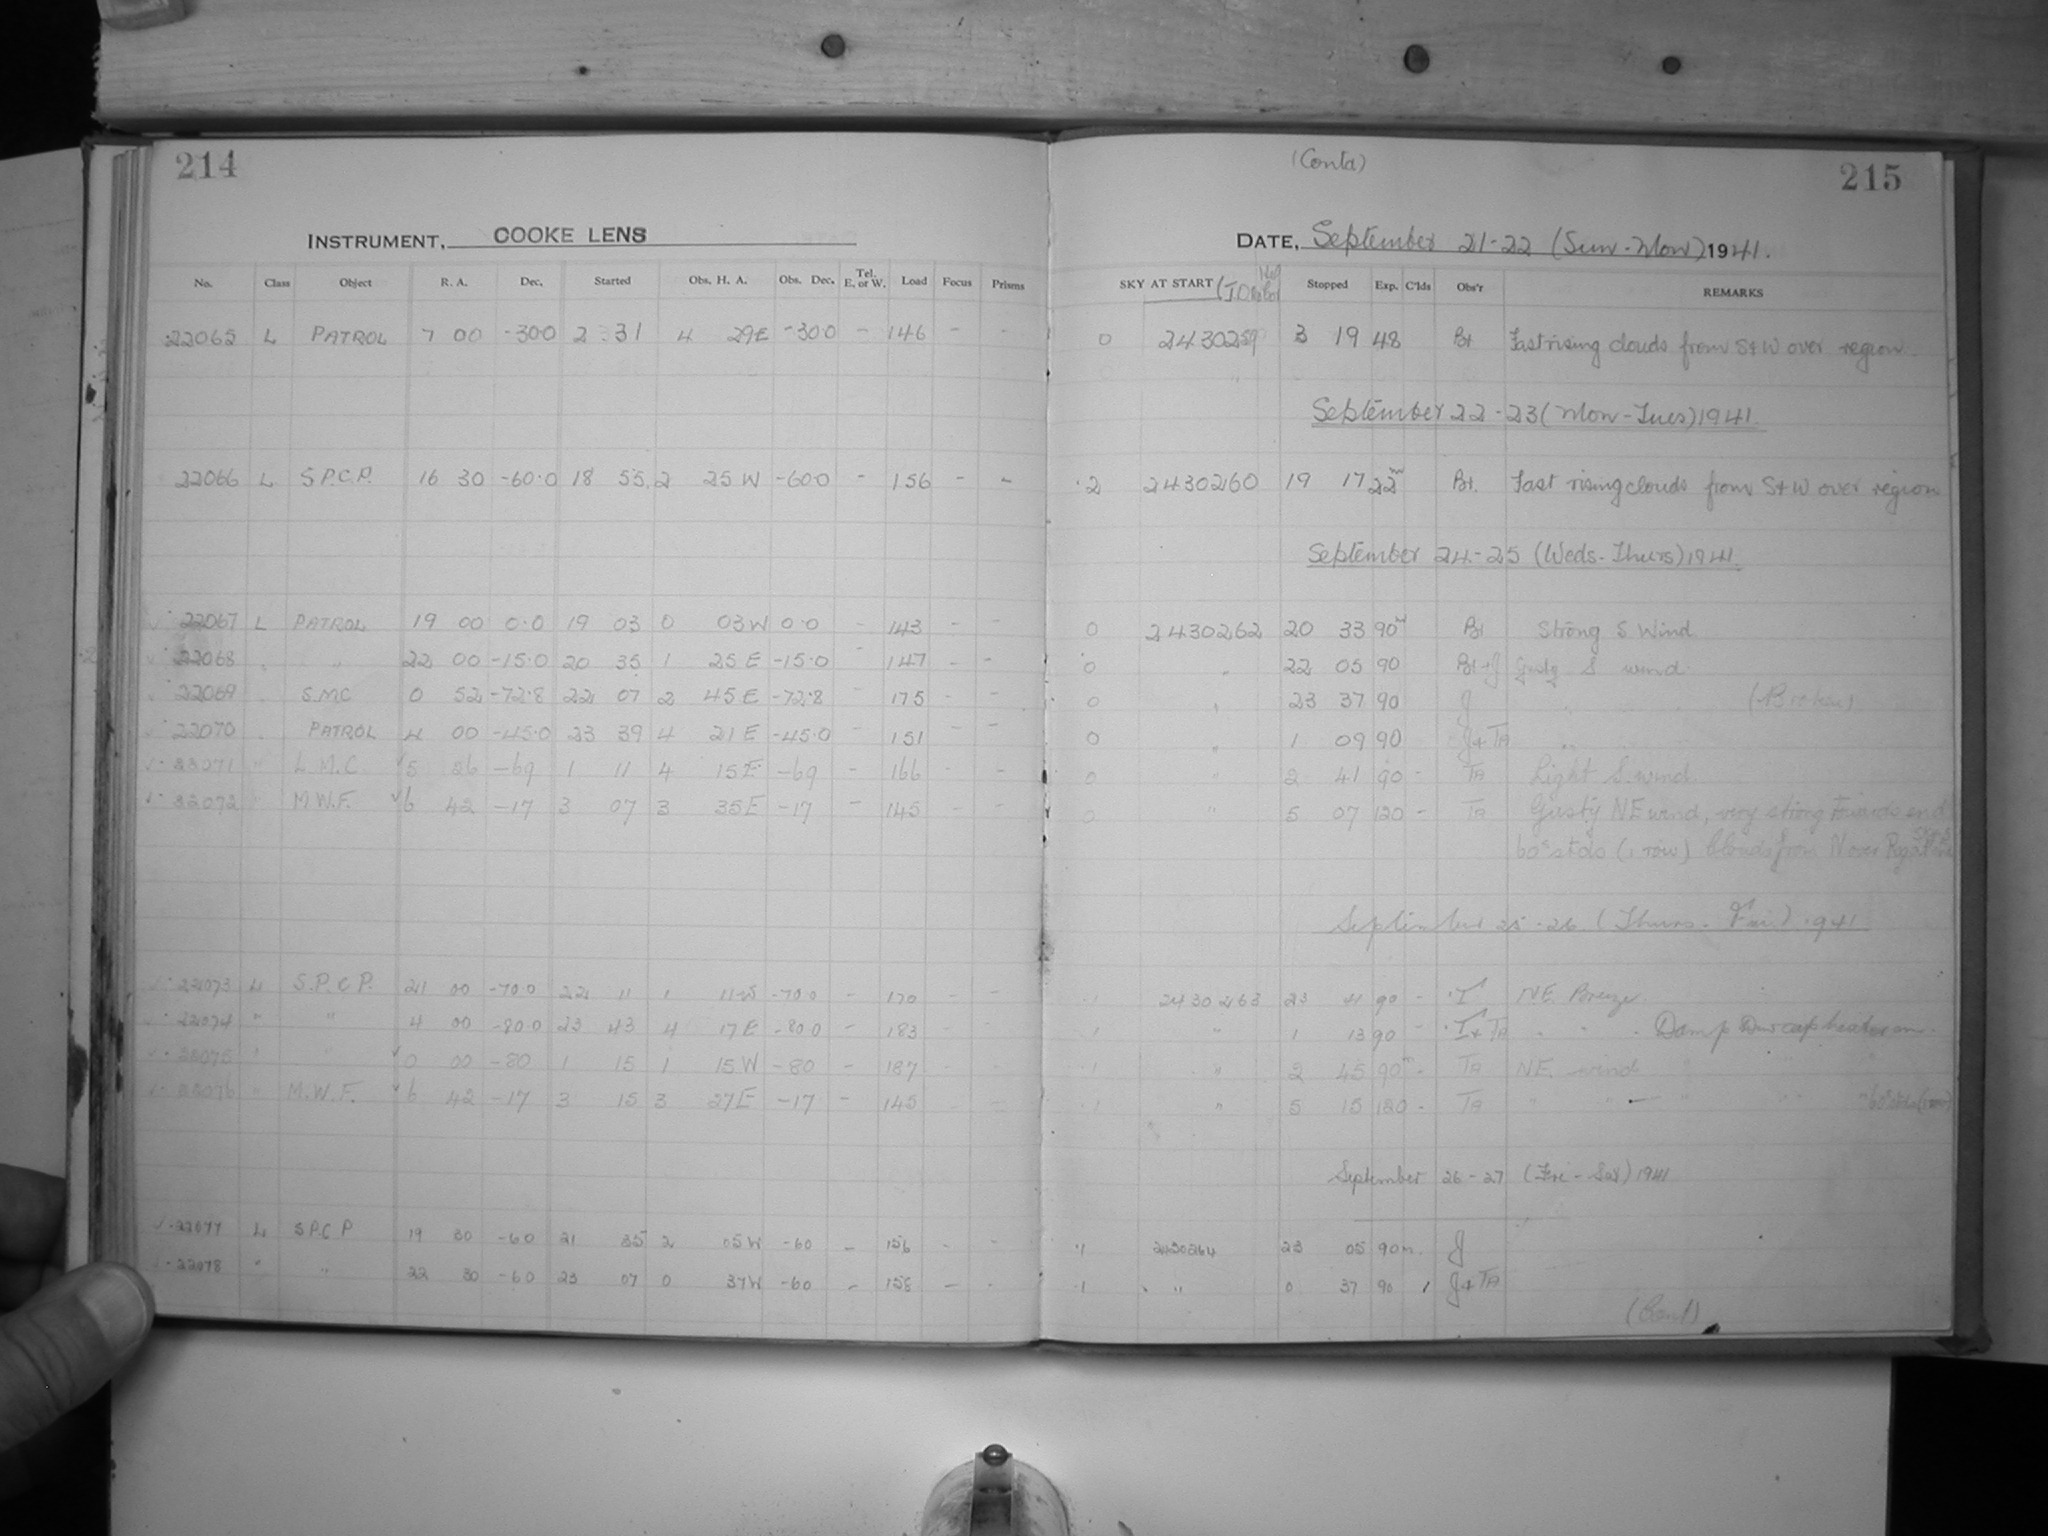 214
INSTRUMENT, COOKE LENS
No. Class Object R. A. Dec. Started Obs. H. A. Obs. Dec. Tel. E. or W. Load Focus Prisms
22065 L PATROL 7 00 -30.0 2 31 4 29E -30.0 - 146 - -
22066 L S.P.C.P. 16 30 -60.0 18 55 2 25 W -60.0 - 156 - -
22067 L PATROL 19 00 0.0 19 03 0 03W 0.0 - 143 - -
22068 " " 22 00 -15.0 20 35 1 25 E -15.0 - 147 - -
22069 S.M.C 0 52 -72.8 22 07 2 45 E -72.8 175 - -
22070 PATROL 4 00 -45.0 23 39 4 21 E -45.0 - 151 - -
22071 " L.M.C. 5 26 -69 1 11 4 15E -69 - 166 - -
22072 " M.W.F. 6 42 -17 3 07 3 35E -17 - 145 - -
22073 L S.P.C.P. 21 00 -70.0 22 11 1 -70.0 - 170 - -
22074 " " 4 00 -80.0 23 43 4 17E -80.0 - 183 - -
22075 " " 0 00 -80 1 15 1 15 W -80 - 187 - -
22076 " M.W.F. 6 42 -17 3 15 3 27E -17 - 145 - -
22077 L S.P.C.P 19 30 -60 21 35 2 05W -60 - 156 - -
22078 " " 22 30 -60 23 07 0 37W -60 - 158 - -
(Contd)
215
DATE, September 21-22 (Sun-Mon) 1941.
SKY AT START Stopped Exp. C'lds Obs'r REMARKS
0 2430259 3 19 48 Bt Fast rising clouds from S+W over region.
September 22-23 (Mon-Tues) 1941.
2 2430260 19 17 22m Bt. Fast rising clouds from S+W over region
September 24-25 (Weds-Thurs) 1941.
0 2430262 20 33 90m Bt Strong S Wind
0 " 22 05 90 Bt+J Gusty S wind.
0 " 23 37 90 J " " " (Broken)
0 " 1 09 90 J+TA "
0 " 2 41 90 - TA Light S. wind.
0 " 5 07 120 - TA Gusty NE wind, very strong towards end
60s stds (1 row) Clouds from N over
September 25-26 (Thurs-Fri) 1941
1 2430263 23 41 90 - J NE Breeze.
1 " 1 13 90 - J+TA " " Damp Dewcap heater on.
1 " 2 45 90m - TA NE. wind
1 " 5 15 120 - TA " " " 60s stds (1 row)
September 26-27 (Fri-Sat) 1941
1 2430264 23 05 90m. J
1 " 0 37 90 1 J+TA
(Cont)